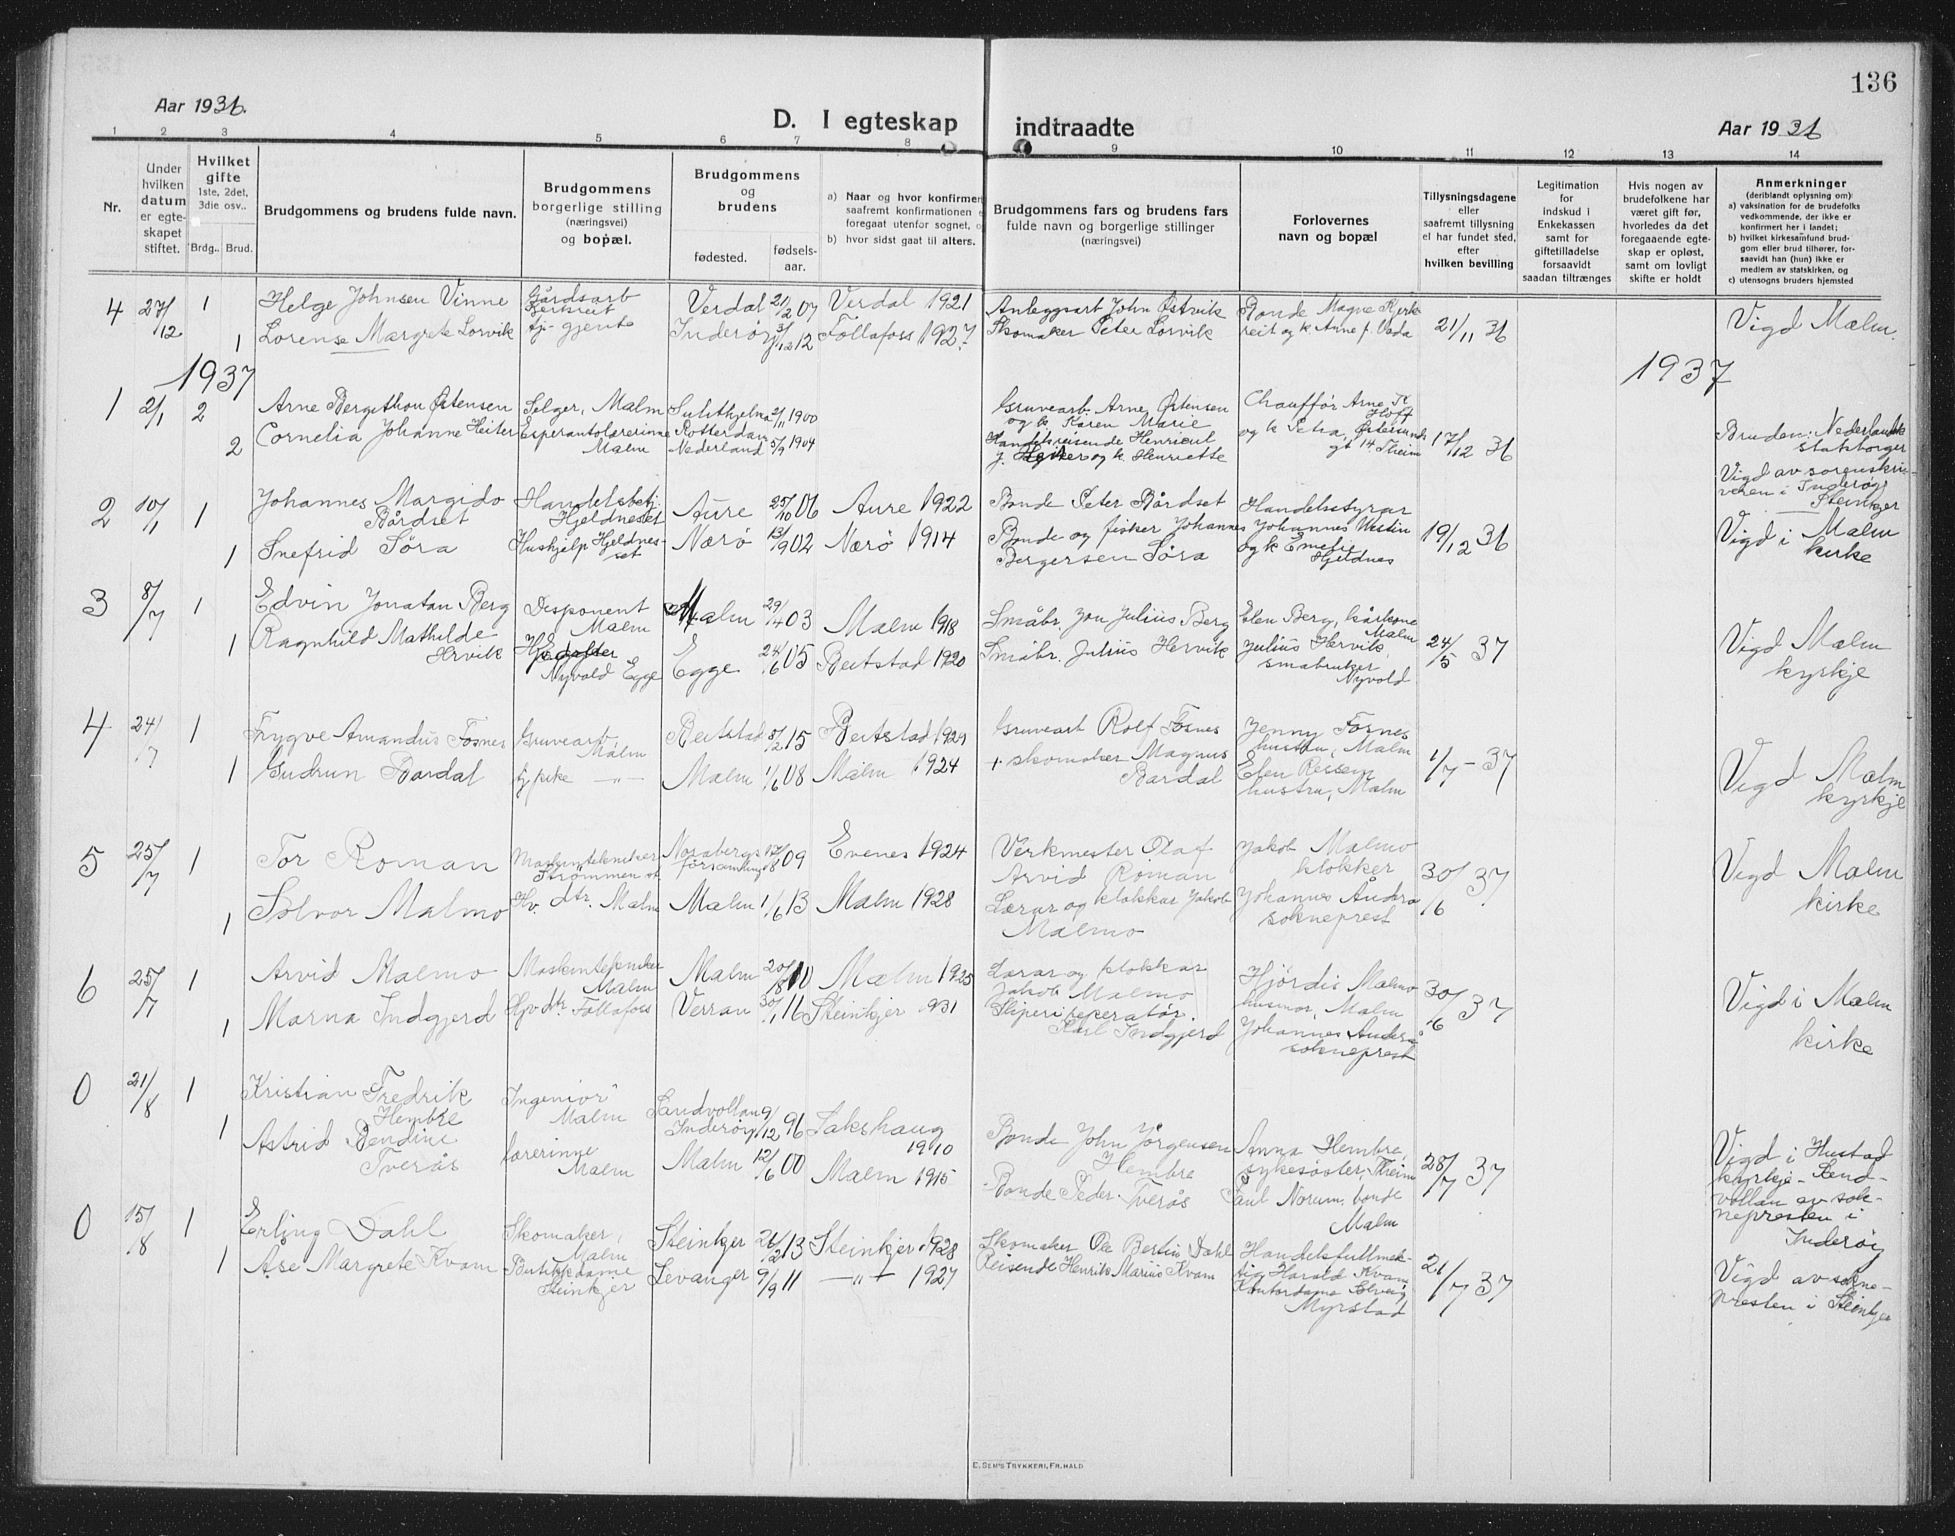 136
Aar 1936.
D. I egteskap indtraadte
Aar 1936
1 2 3 4 5 6 7 8 9 10 11 12 13 14
Nr.
Under hvilken datum er egte-skapet stiftet.
Hvilket gifte
1ste, 2det, 3die osv..
Brdg.. Brud.
Brudgommens og brudens fulde navn.
Brudgommens borgerlige stilling (næringsvei) og bopæl.
Brudgommens og brudens
fødested.
fødsels-aar.
a) Naar og hvor konfirmer
saafremt konfirmationen
foregaat utenfor sognet,
b) hvor sidst gaat til alters.
Brudgommens fars og brudens fars
fulde navn og borgerlige stillinger
(næringsvei)
Forlovernes
navn og bopæl
Tillysningsdagene
eller
saafremt tillysning
ei har fundet sted,
efter
hvilken bevilling
Legitimation
for
indskud i
Enkekassen
samt for
giftetilladelse
forsaavidt
saadan tiltrænges
Hvis nogen av
brudefolkene har
været gift før,
hvorledes da det
foregaaende egte-
skap er opløst,
samt om lovligt
skifte er holdt
Anmerkninger
(deriblandt oplysning om)
a) vaksination for de brudefolks
vedkommende, der ikke er
konfirmert her i landet;
b) hvilket kirkesamfund brud-
gom eller brud tilhører, for-
saavidt han (hun) ikke er
medlem av statskirken, og
c) utensogns bruders hjemsted
4 27/12 1 Helge Johnsen Vinne Gårdsarb Verdal 21/2 07 Verdal 1921 Anleggsarb John Østvik Bonde Magne Kjerk-
1 Lorense Margrete Lorvik tj- gjente Inderøy 3/12 12 Follafoss 1927. Skomaker Peter Lorvik reit og k. Anne f. Vada 21/11 36 Vigd Malm.
1937 1937
1 2/1 2 Arne Bergithon Østensen Selger, Malm Sulithjelma 2/11 1900 Gruvearb. Arne Østensen Chauffør Arne K. Hoff
og k. Karen Marie
2 Cornelia Johanne Heiter Esperantolærerinne Malm Rotterdam Nederland 5/9 1904 Handelsreisende Henricus
J. Heiter og k. Henriette og k Petra, Østersunds gt 14. Theim 17/12 36 Bruden: Nederlandsk statsborger
Vigd av sorenskri-
veren i Inderøy
Steinkjer
2 10/1 1 Johannes Margido Bårdset Handelsbetj. Hjeldneset Aure 25/10 06 Aure 1922 Bonde Peter Bårdset Handelsstyrar
1 Snefrid Söra Hushjelp Hjeldnes-set Nærö 13/9 02 Nærö 1914 Bonde og fisker Johannes Bergersen Söra Johannes Westin og k Emelie Hjeldnes 19/12 36 Vigd i Malm kirke
3 8/7 1 Edvin Jonatan Berg Disponent Malm Malm 29/4 03 Malm 1918 Småbr. Jon Julius Berg Elen Berg, kårkone Malm
1 Ragnhild Mathilde Hervik Nyvold Egge Egge 24/6 05 Beitstad 1920 Småbr. Julius Hervik Julius Hervik, småbruker Nyvold 24/5 37 Vigd Malm kyrkje
4 24/7 1 Trygve Amandus Fosnes Gruvearb Malm Beitstad 8/2 15 Beitstad 1929 Gruvearb Rolf Fosnes Jenny Fosnes hustru, Malm
1 Gudrun Bardal tj pike —"— Malm 1/6 08 Malm 1924 + skomaker Magnus Bardal Elen Ressem hustru, Malm 1/7 - 37 Vigd Malm kyrkje
5 25/7 1 Tor Roman Maskintekniker Strömmen Norabergs församling 17/8 09 Evenes 1924 Verkmester Olaf Arvid Roman Jakob Malmo klokker
1 Solvor Malmo Hv. dtr. Malm Malm 1/6 13 Malm 1928 Lærar og klokkar Jakob Malmo Johannes Anderå sokneprest 30/6 37 Vigd Malm kirke
6 25/7 1 Arvid Malmo Maskintekniker Malm Malm 20/8 10 Malm 1925 Lærar og klokkar Jakob Malmo Hjördis Malmo husmor, Malm
1 Marna Indgjerd Hjv dtr Follafoss Verran 30/1 16 Steinkjer 1931 Sliperireperatör Karl Indgjerd Johannes Anderå sokneprest 30/6 37 Vigd i Malm kirke
0 21/8 1 Kristian Fredrik Hembre Ingeniör Malm Sandvollan Inderöy 9/12 96 Sakshaug 1910 Bonde John Jörgensen Hembre Anna Hembre, sykesöster, Theim
1 Astrid Bendine Tverås Lærerinne Malm Malm 12/6 00 Malm 1915 Bonde Peder Tverås Paul Norum, bonde Malm 28/7 37 Vigd i Hustad kyrkje - Sand-
vollan av sok-
nepresten i
Inderøy
0 15/8 1 Erling Dahl Skomaker, Malm Steinkjer 26/2 13 Steinkjer 1928 Skomaker Ole Bertin Dahl Handelsfullmek-
1 Åse Margrete Kvam Butikkdame Steinkjer Levanger 9/9 11 —"— 1927 Reisende Henrik Marius Kvam tig Harald Kvam Kontordame Solveig Myrstad 21/7 37 Vigd av sokne-
presten i Steinkjer
E. SEM'S TRYKKERI, FR.HALD